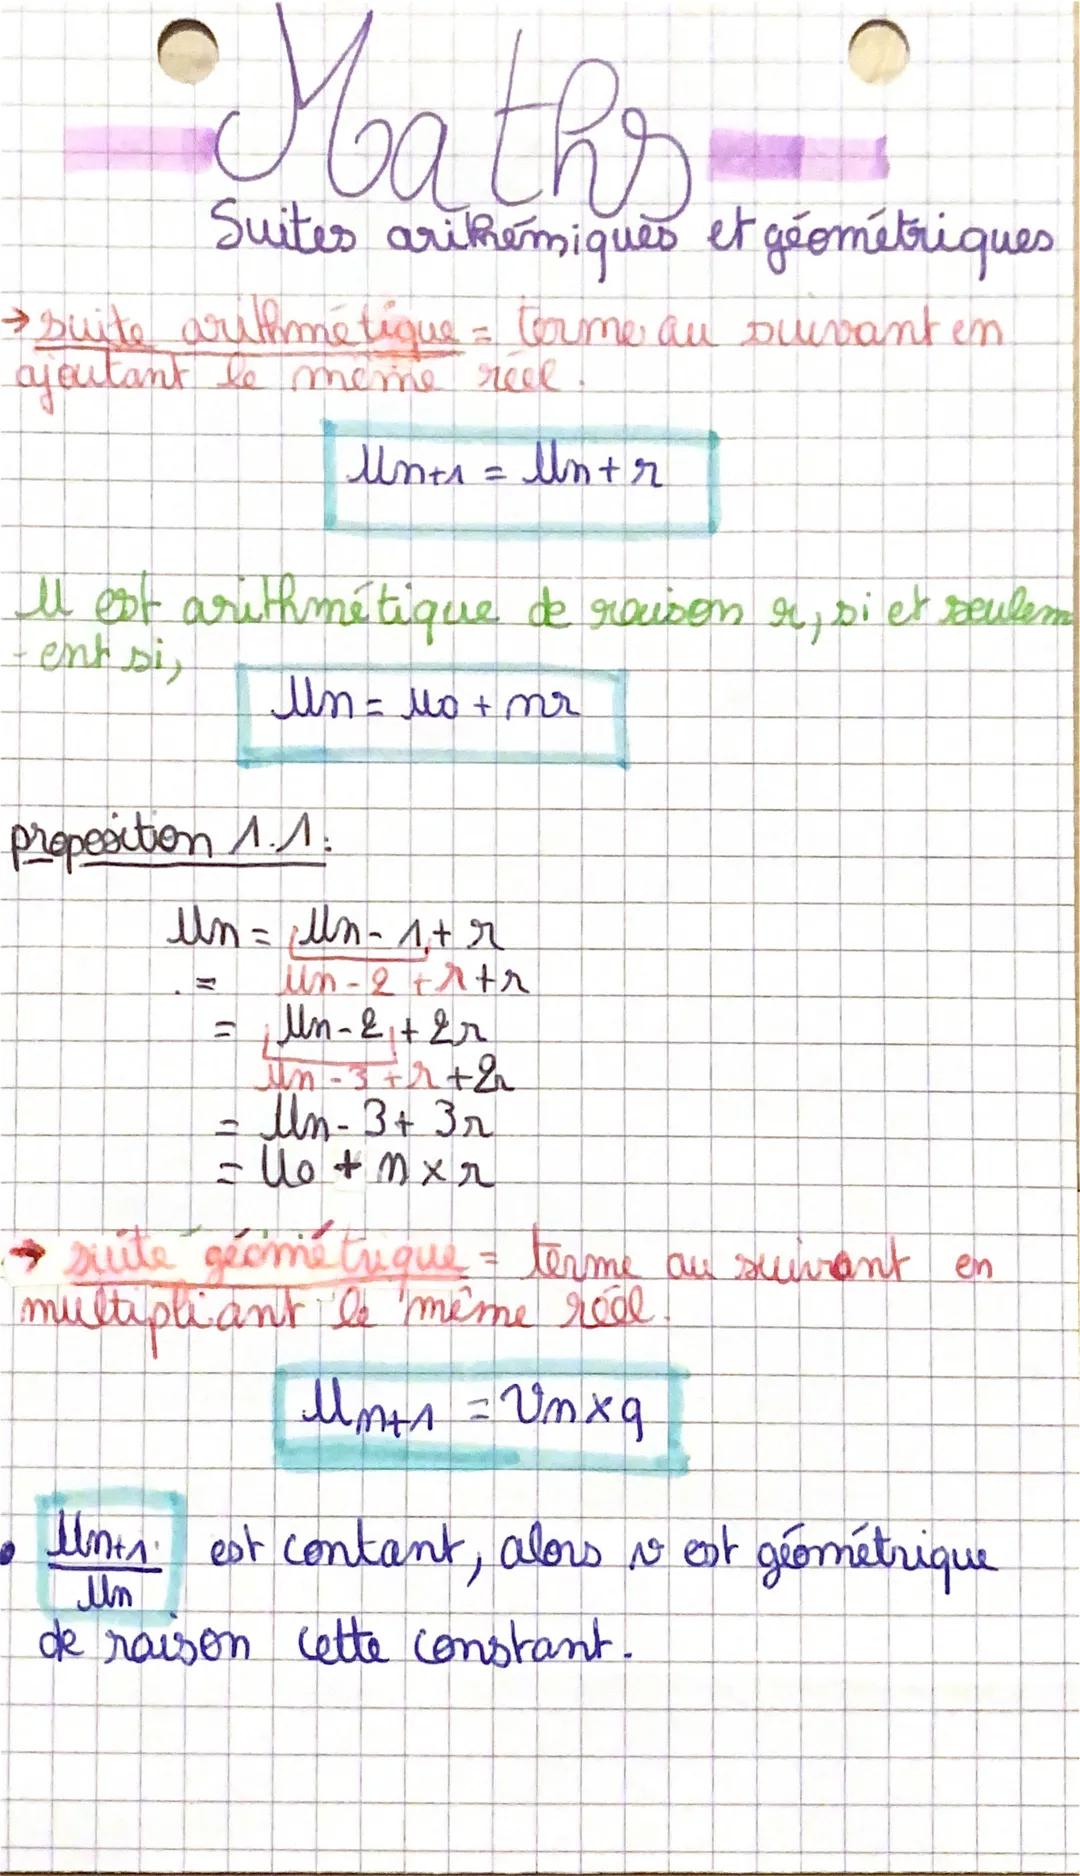 Maths
Suites arithémiques et géométriques
→ suite arithmétique = terme au suivant en
ajoutant le même réel.
Un+1 = Un + r
U est arithmétique de raison r, si et seulem
-ent si,
Un = U0 + nr
proposition 1.1:
Un = Un-1 + r
= Un-2 + r + r
= Un-2 + 2r
Un-3 + r + 2r
= Un-3 + 3r
= U0 + n x r
→ suite géométrique = terme au suivant en
multipliant le même réel.
Un+1 = Vn x q
• Un+1 / Un est contant, alors v est géométrique
de raison cette constant.